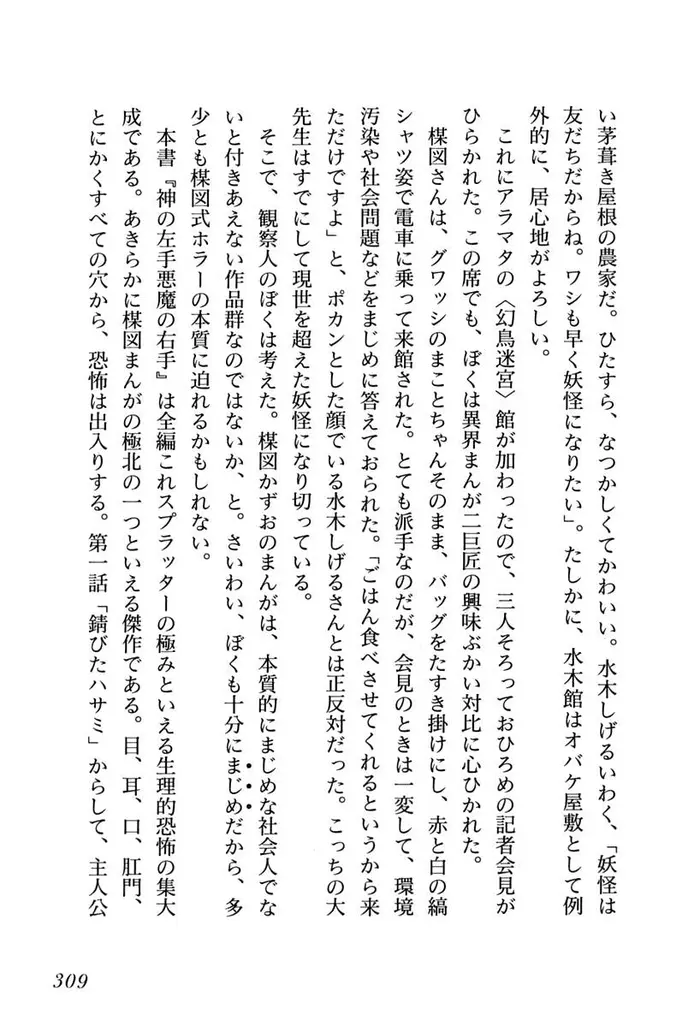 い茅葺き屋根の農家だ。ひたすら、なつかしくてかわいい。水木しげるいわく、「妖怪は
友だちだからね。ワシも早く妖怪になりたい」。たしかに、水木館はオバケ屋敷として例
外的に、居心地がよろしい。
これにアラマタの〈幻鳥迷宮〉館が加わったので、三人そろっておひろめの記者会見が
ひらかれた。この席でも、ぼくは異界まんが二巨匠の興味ぶかい対比に心ひかれた。
楳図さんは、グワッシのまことちゃんそのまま、バッグをたすき掛けにし、赤と白の縞
シャツ姿で電車に乗って来館された。とても派手なのだが、会見のときは一変して、環境
汚染や社会問題などをまじめに答えておられた。「ごはん食べさせてくれるというから来
ただけですよ」と、ポカンとした顔でいる水木しげるさんとは正反対だった。こっちの大
先生はすでにして現世を超えた妖怪になり切っている。
そこで、観察人のぼくは考えた。楳図かずおのまんがは、本質的にまじめな社会人でな
いと付きあえない作品群なのではないか、と。さいわい、ぼくも十分にまじめだから、多
少とも楳図式ホラーの本質に迫れるかもしれない。
本書『神の左手悪魔の右手』は全編これスプラッターの極みといえる生理的恐怖の集大
成である。あきらかに楳図まんがの極北の一つといえる傑作である。目、耳、口、肛門、
とにかくすべての穴から、恐怖は出入りする。第一話「錆びたハサミ」からして、主人公
309